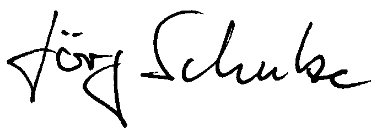 Jörg Schulze